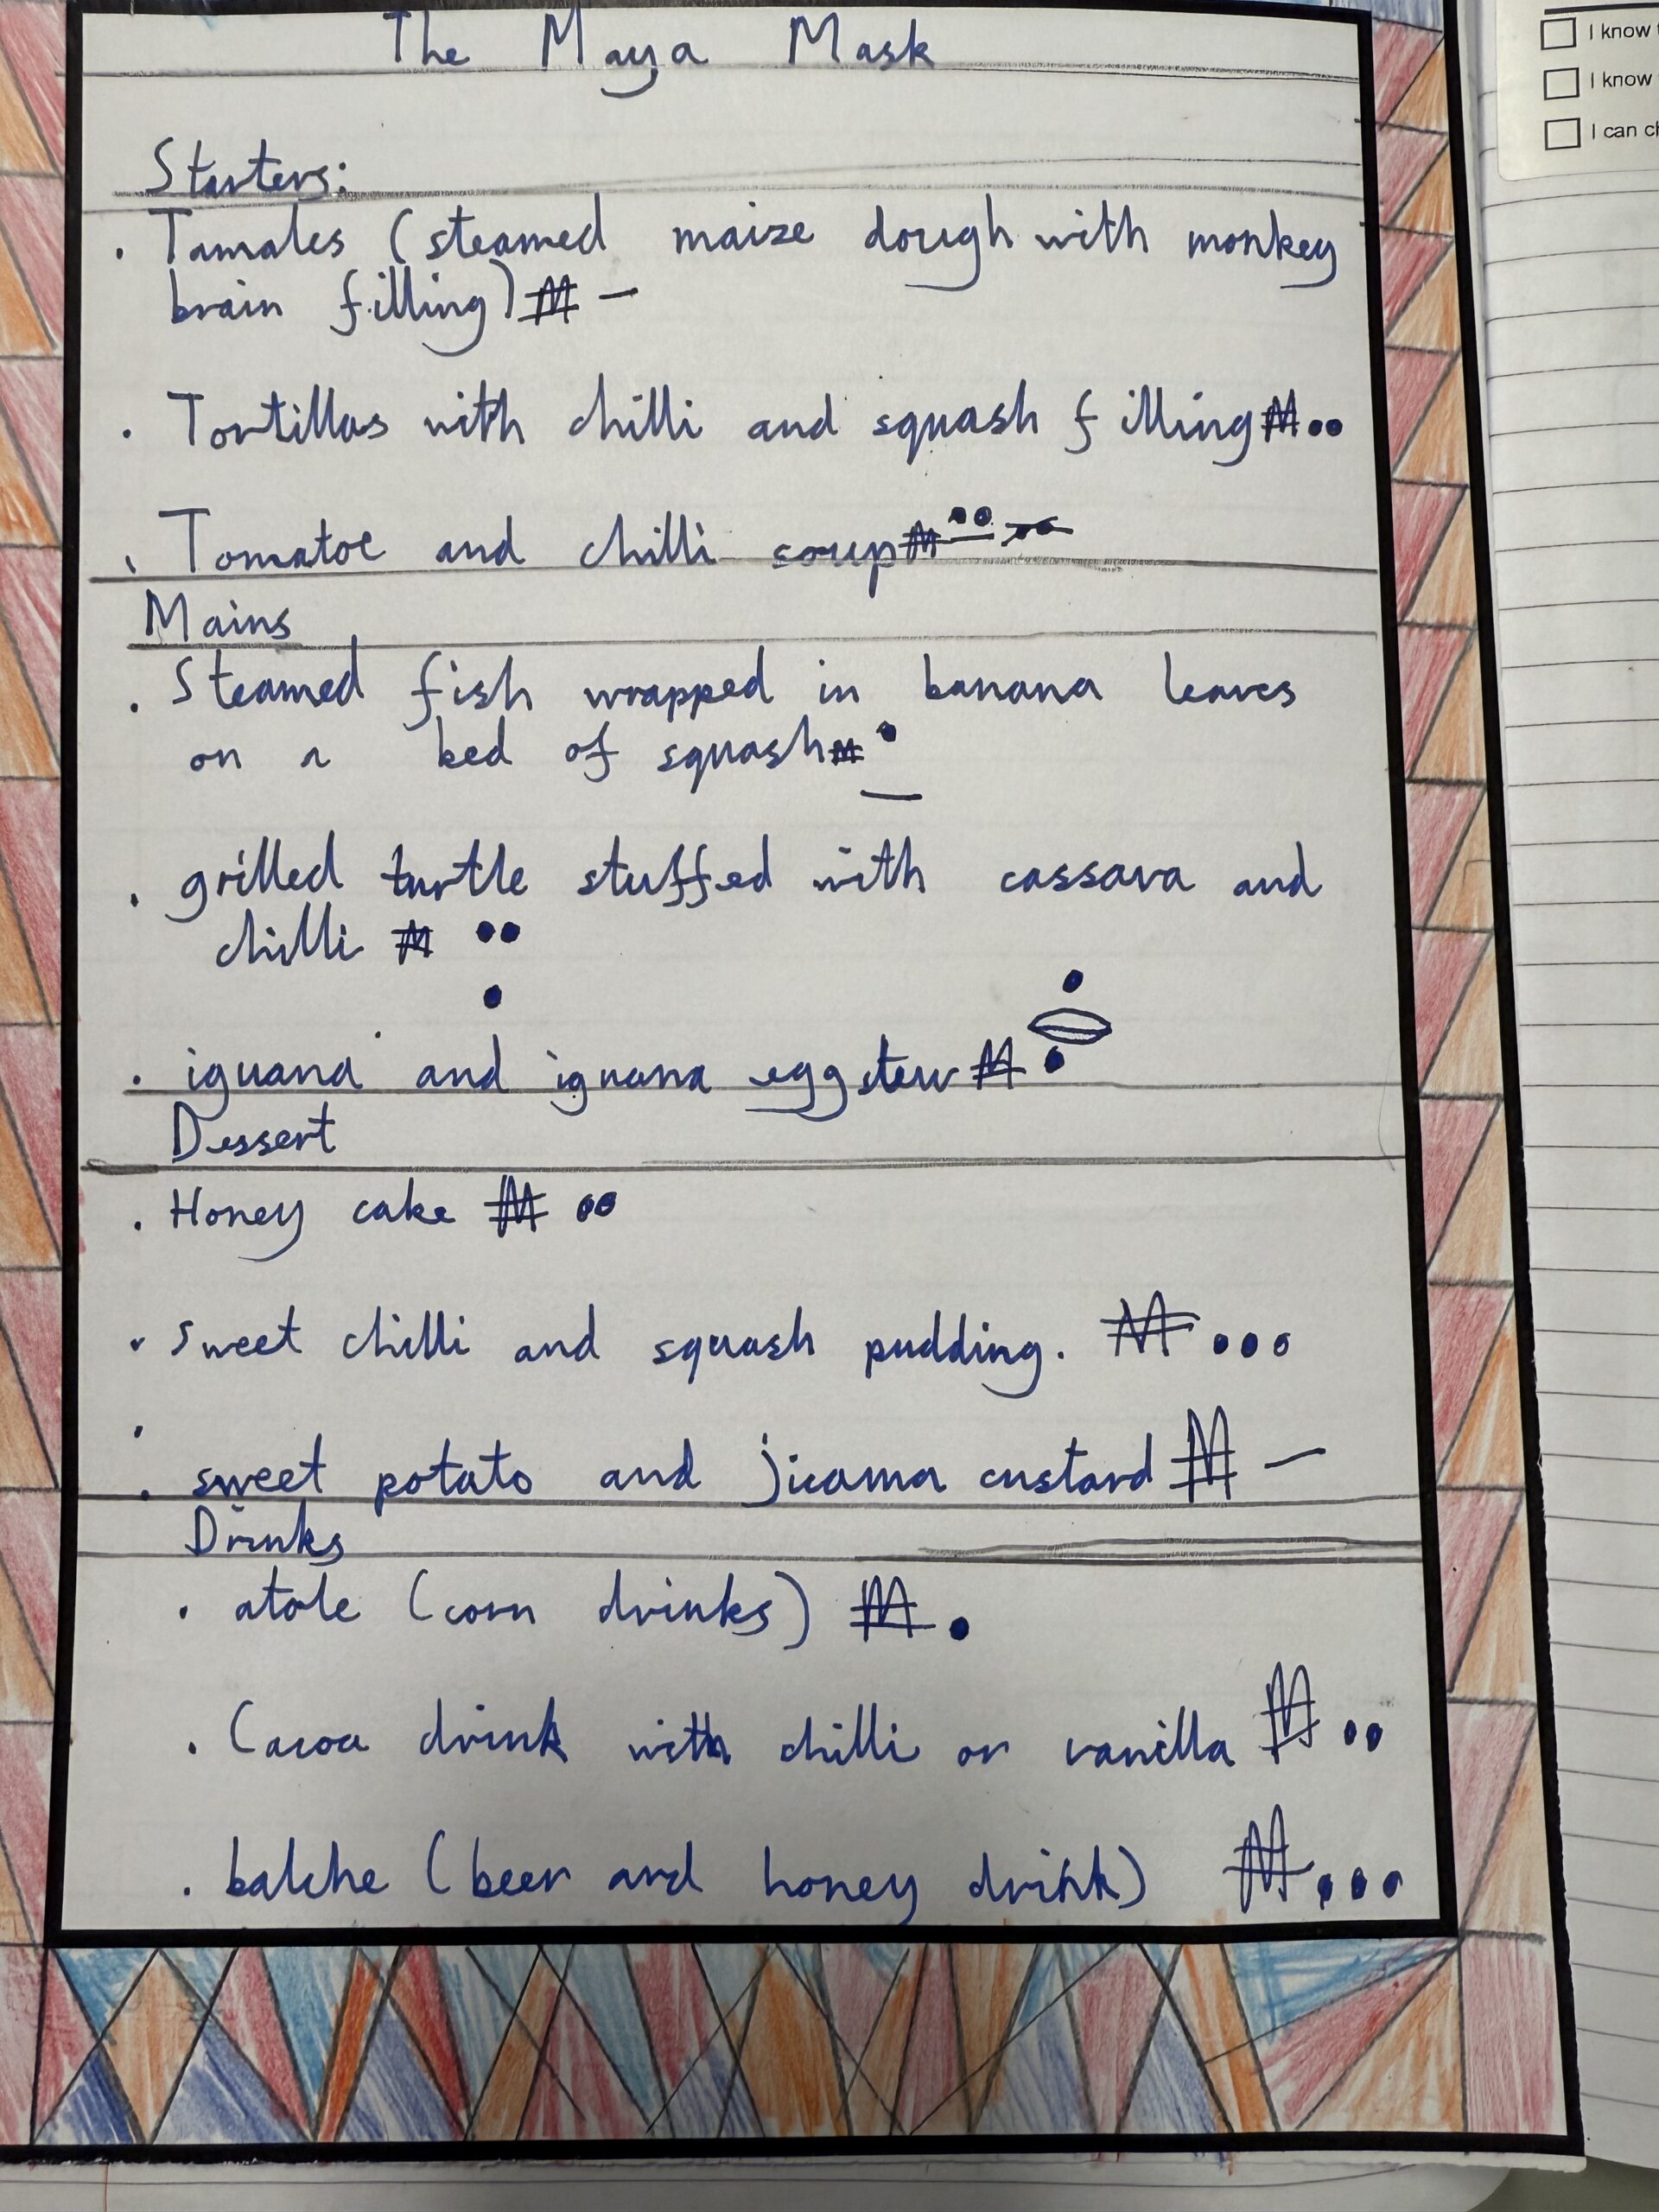 The Maya Mask
Starters:
. Tamales (steamed maize dough with monkey
brain filling) M —
. Tortillas with chilli and squash filling M ••
. Tomatoe and chilli soup M ••
Mains
. Steamed fish wrapped in banana leaves
on a bed of squash M •
—
. grilled turtle stuffed with cassava and
chilli M ••
•
. iguana and iguana egg stew M •
Dessert
. Honey cake M ••
. Sweet chilli and squash pudding. M •••
. sweet potato and jicama custard M —
Drinks
. atole (corn drinks) M •
. Cacoa drink with chilli or vanilla M ••
. balche (beer and honey drink) M •••
I know
I know
I can